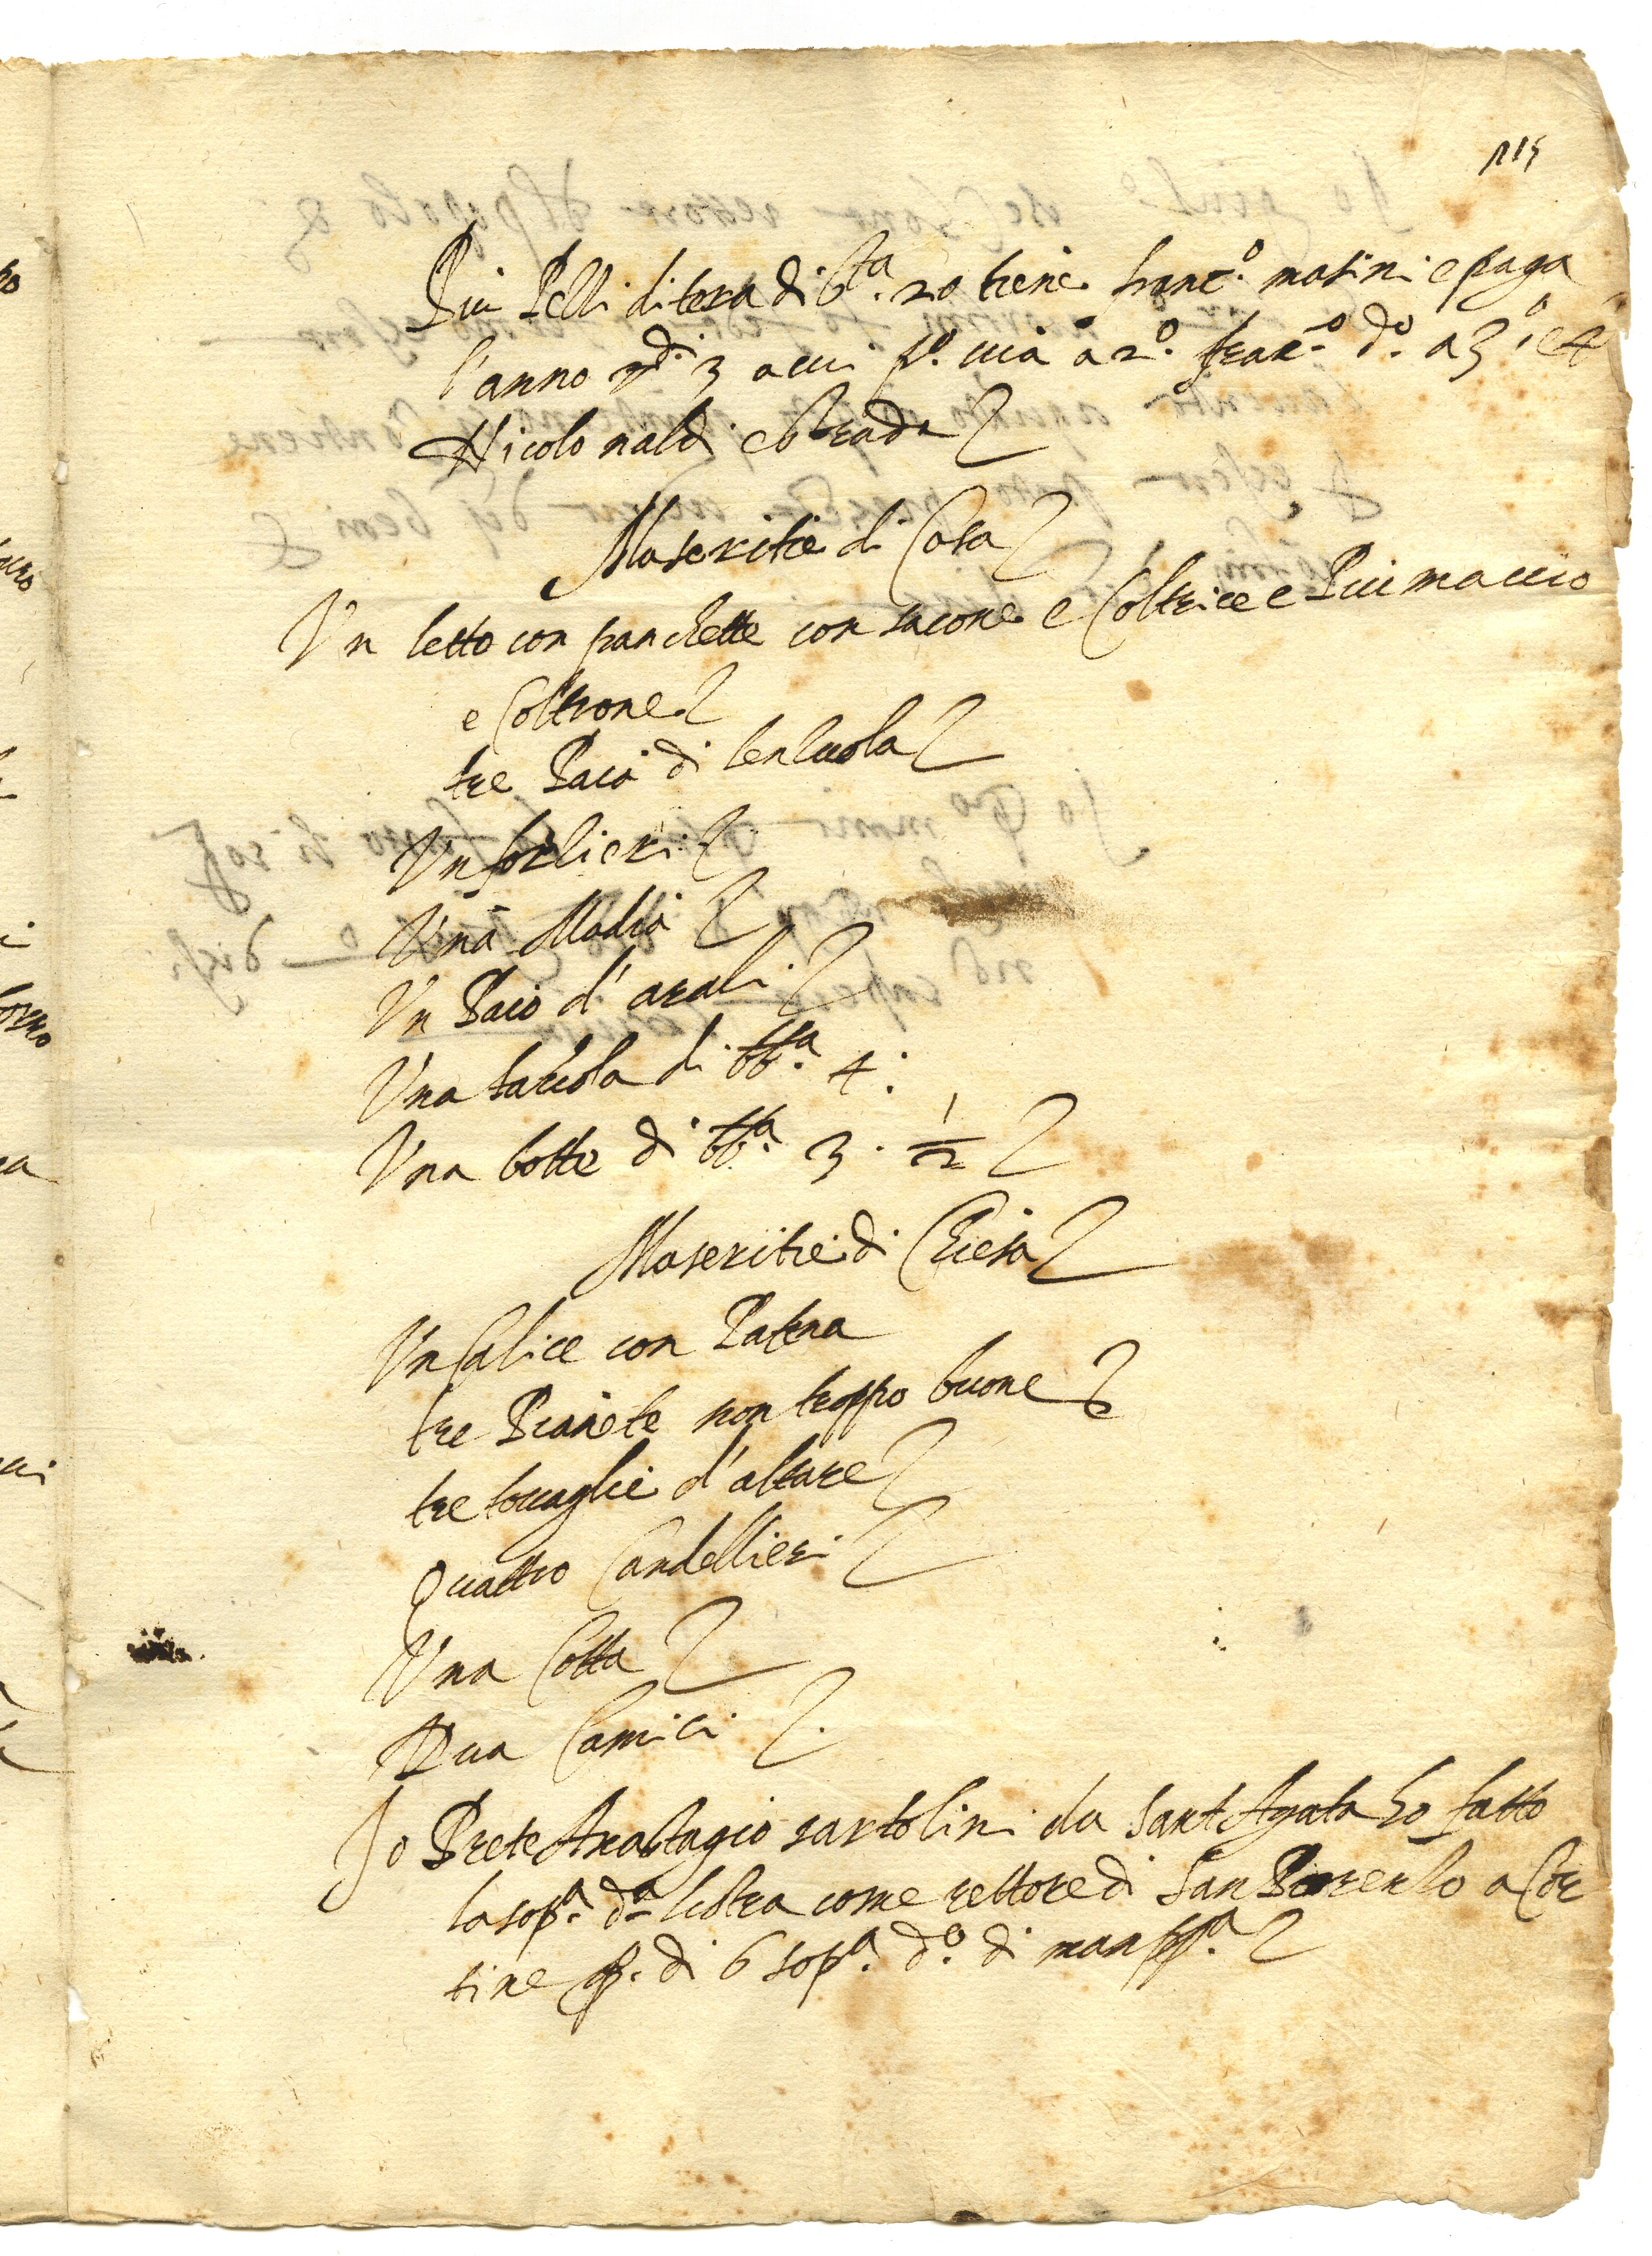 115
Piu Pelli di tera di b.ta 20 tiene franc.o masini e paga
l'anno 3 a cui p.o via a 2.o franc.o d.o a 3.o e 4.o
Nicolo naldi e strada
Maseritie di Casa
Un letto con panchette con sacone e Coltrice e Piumaccio
e Coltrone
tre Paia di lenzuola
Un forlieri
Una Madia
Un Paio d'arali
Una tavola di bb.a 4.
Una botte di bb.a 3. 1/2
Maseritie di Chiesa
Un Calice con Patena
tre Pianete non troppo buone
tre tovaglie d'altare
Quattro Candellieri
Una Cotta
Dua Camici
Io Prete Anastagio sartolini da Sant Agata ho fatto
la sop.a d.a listra come rettore di San Lorenzo a Cor
tine q. di 6 sop.a d.o di man pp.a